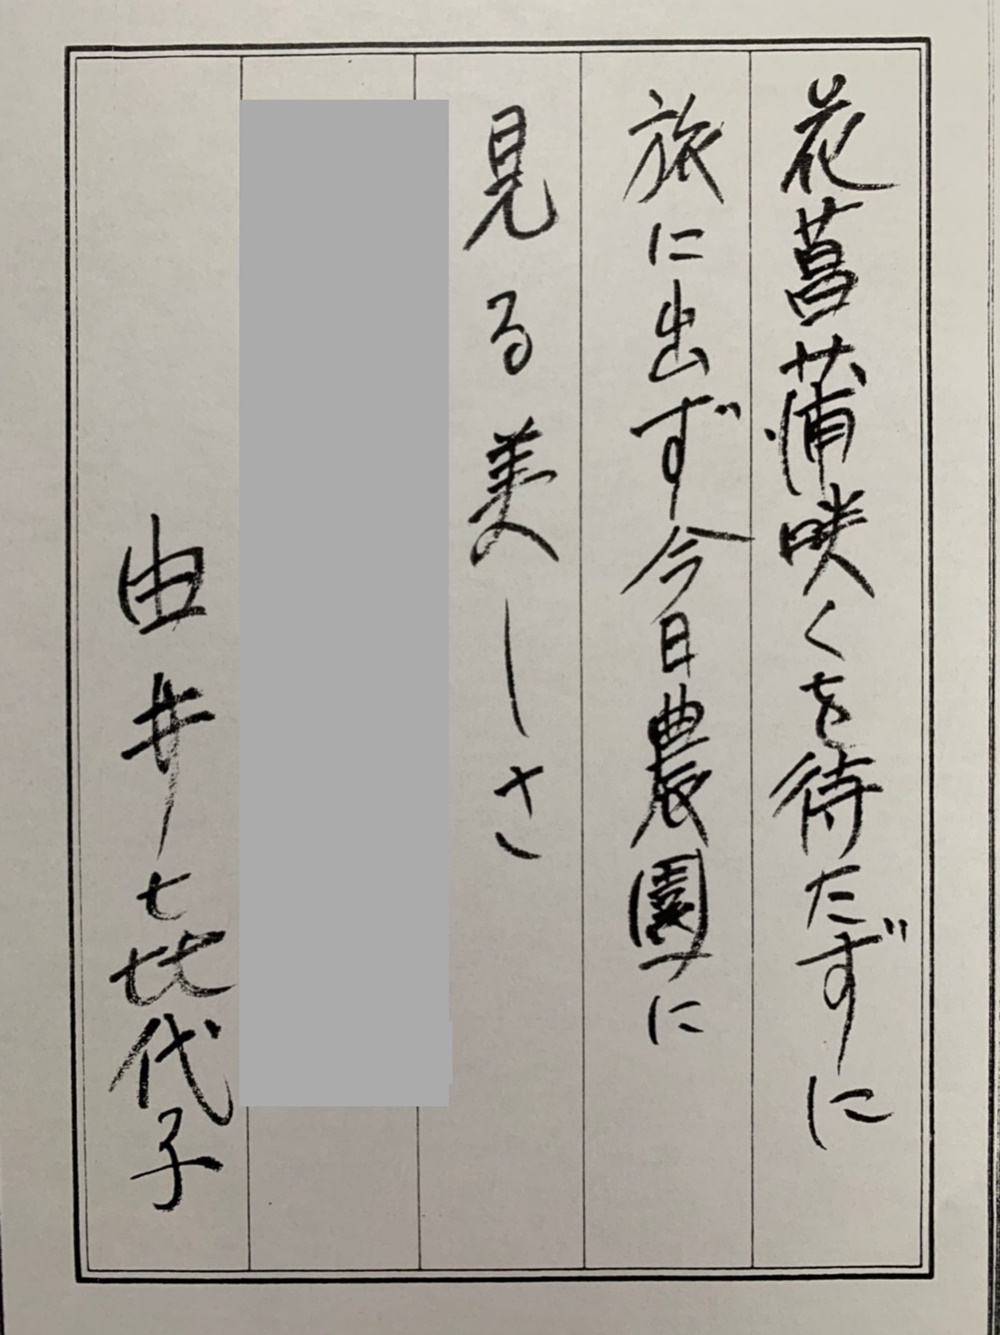 花菖蒲咲くを待たずに
旅に出ず今日農園に
見る美しさ
由井㐂代子